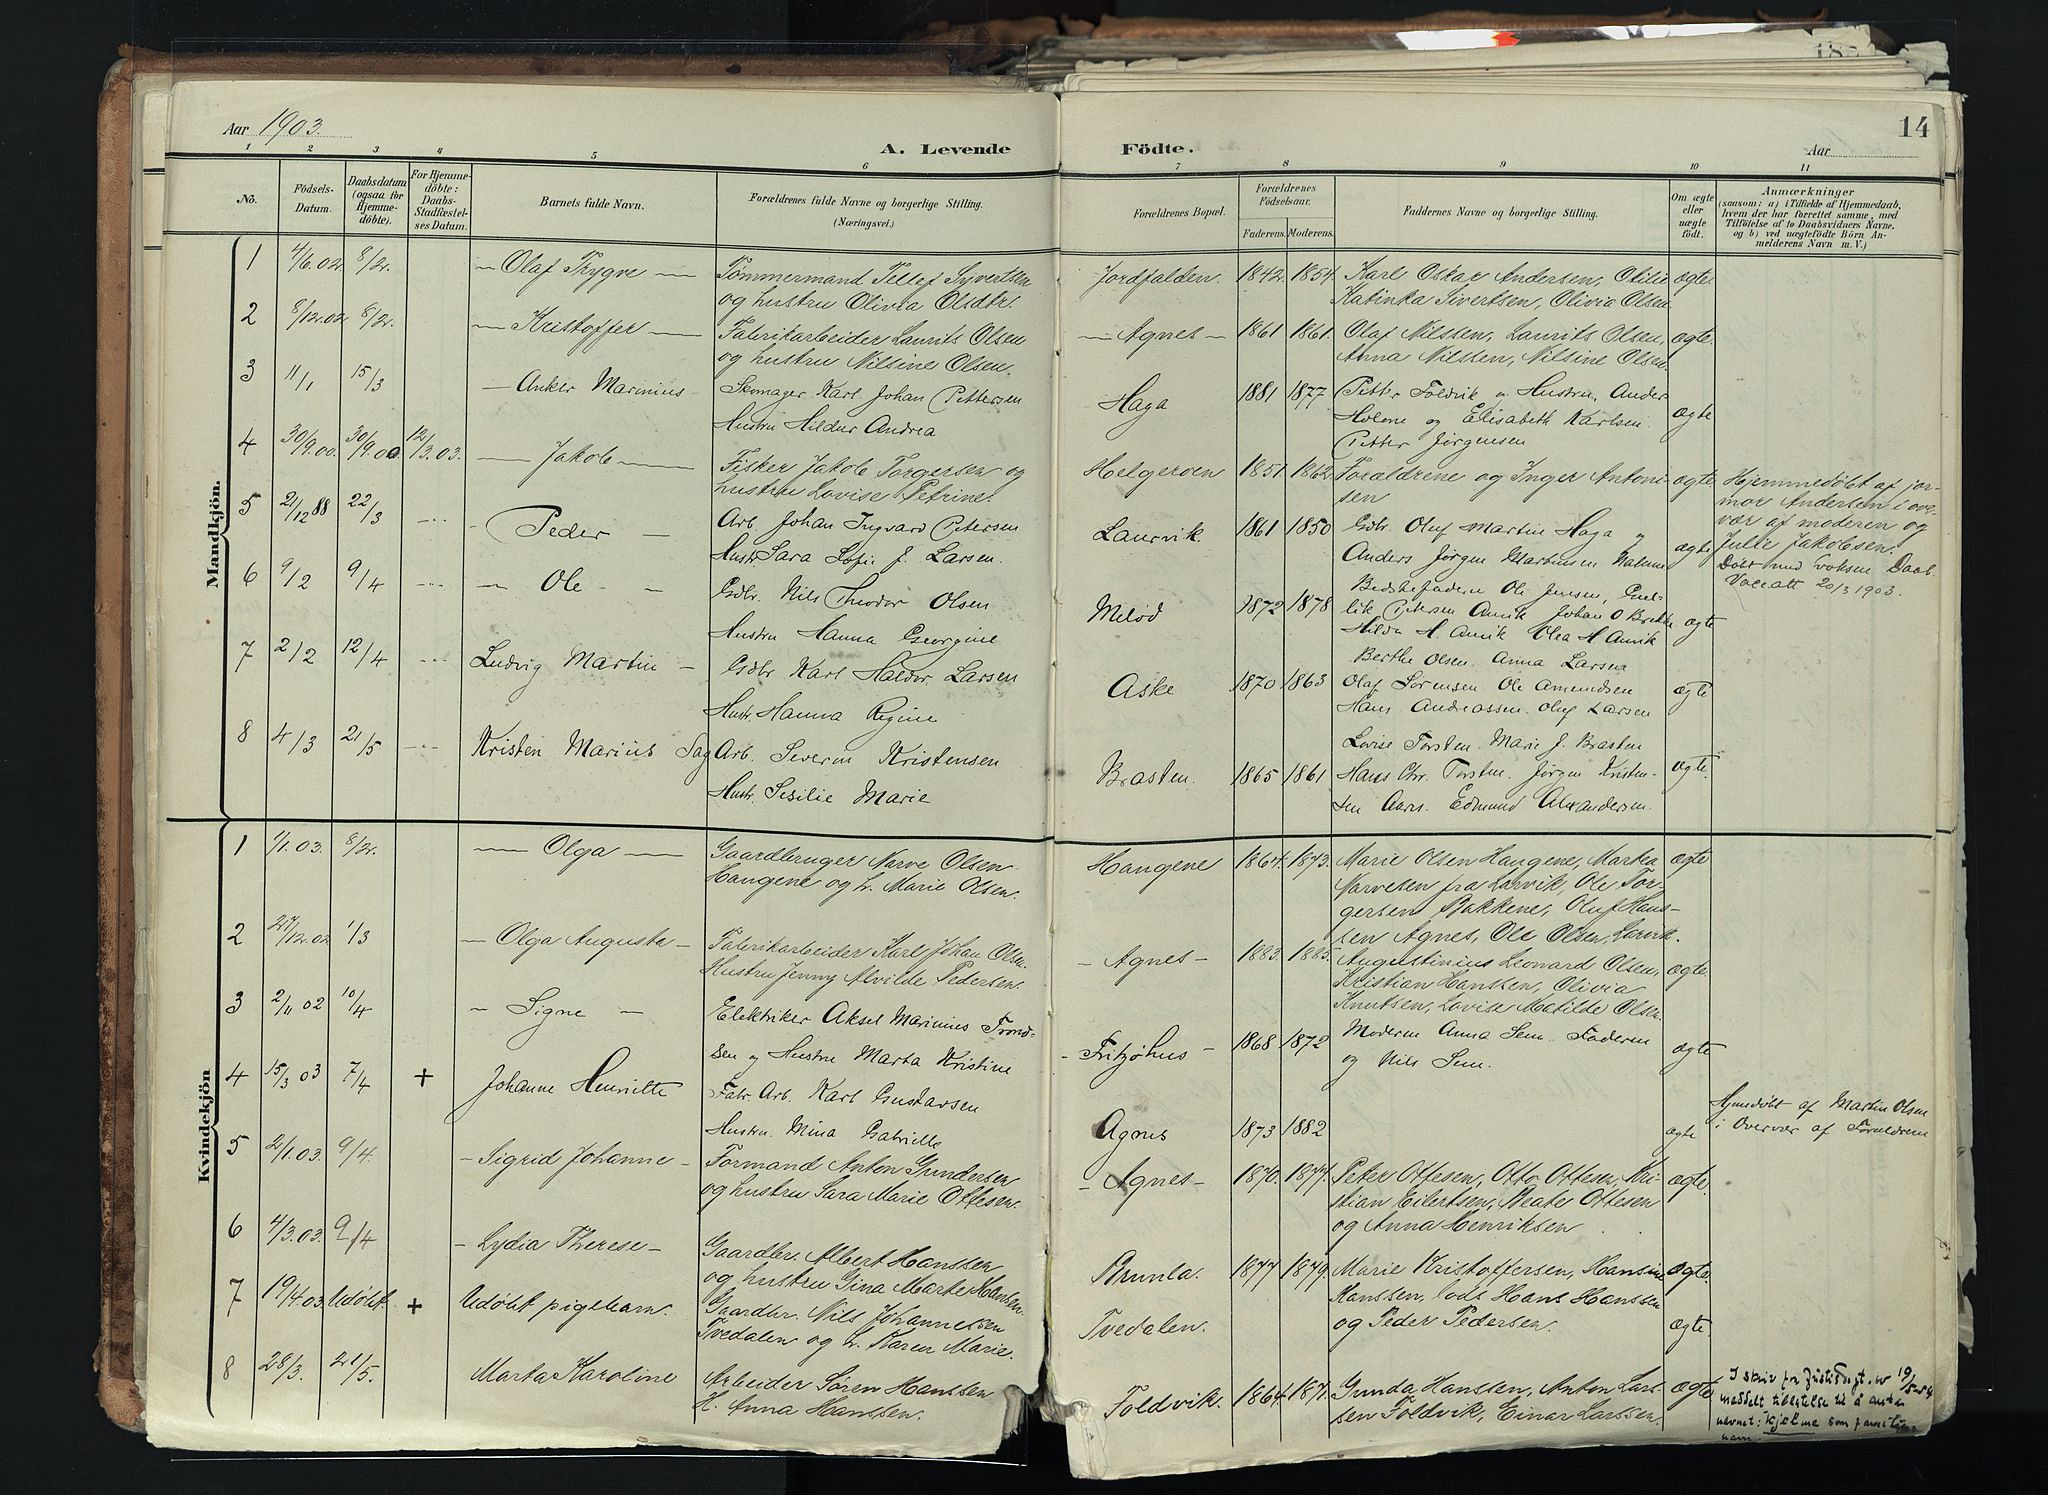 Aar 1903.
A. Levende Födte.
14
Aar
182
1 2 3 4 5 6 7 8 9 10 11
No.
Födsels-
Datum.
Daabsdatum
(ogsaa for
Hjemme-
döbte).
For Hjemme-
döbte:
Daabs-
Stadfæstel-
ses Datum.
Barnets fulde Navn.
Forældrenes fulde Navne og borgerlige Stilling.
(Næringsvei.)
Forældrenes Bopæl.
Forældrenes
Födselsaar.
Faderens. Moderens.
Faddernes Navne og borgerlige Stilling.
Om ægte
eller
uægte
födt.
Anmærkninger
(saasom: a) i Tilfælde af Hjemmedaab,
hvem der har forrettet samme, med
Tilföielse af to Daabsvidners Navne,
og b) ved uægtefödte Börn An-
melderens Navn m. V.)
Mandkjön.
1 4/6.02. 8/2. — Olaf Trygve — Tømmermand Tellef Syvertsen
og hustru Olivia Olsdtr.
Jordfalden. 1842. 1854. Karl Oskar Andersen, Otilie ægte.
Katinka Sivertsen, Olivia Olsen.
2 8/12.02. 8/2. — Kristoffer — Fabrikarbeider Laurits Olsen
og hustru Nilsine Olsen.
— Agnes — 1861 1861. Olaf Nilssen, Laurits Olsen, ægte.
Anna Nilssen, Nilsine Olsen.
3 11/1 15/3 — Anker Marinius — Skomager Karl Johan Pettersen
Hustru Hildur Andrea
Haga 1881 1877 Petter Foldvik og Hustru, Anders
Holene og Elisabeth Karlsen. ægte
Petter Jørgensen
4 30/9.00. 30/9.00 12/3.03. — Jakob — Fisker Jakob Torgersen og
hustru Lovise Petrine.
Helgeroen 1851. 1862. Forældrene og Inger Antoni- ægte.
sen
Hjemmedøbt af jor-
mor Andersen i ove-
vær af moderen og
Julie Jakobsen.
5 21/12 88 22/3 — Peder — Arb. Johan Ingvard Petersen
Hustr. Sara Sofie J. Larsen.
Laurvik. 1861 1850 Gdbr. Oluf Martin Haga og
Anders Jørgen Martinsen Nalum ægte
Døbt med voksen Daab.
Vaceatt 20/3 1903.
6 9/2 9/4 — Ole — Gdbr. Nils Theodor Olsen
Hustru Hanna Georgine
Melød 1872 1878 Bedstefaderen Ole Jensen,
Petersen Anvik Johan O Brekke ægte
Hilda H. Anvik Olea H Anvik
7 2/2 12/4 Ludvig Martin — Gdbr Karl Haldor Larsen
Hustr. Hanna Regine
Aske 1870 1863 Berthe Olsen Anna Larsen
Olaf Sørensen Ole Amundsen ægte
Hans Andreassen. Oluf Larsen
8 4/3 21/5 Kristen Marius Sag Arb. Severin Kristensen
Hustr. Sesilie Marie
Brasten. 1865 1861 Lovise Torsten. Marie J. Brasten
Hans Chr. Torsten. Jørgen Kristen- ægte.
sen Aarø. Edmund Alexandersen.
Kvindekjön
1 1/1.03. 8/2. — Olga — Gaardbruger Narve Olsen
Haugene og h. Marie Olsen.
Haugene 1864. 1873. Marie Olsen Haugene, Martea ægte
Narvesen fra Larvik, Ole Tor-
gersen Bakkene, Oluf Hans-
sen Agnes, Ole Olsen, Larvik.
2 27/12.02. 1/3 — Olga Augusta — Fabrikarbeider Karl Johan Olsen.
Hustru Jenny Alvilde Pedersen.
— Agnes — 1883. 1885. Augustinius Leonard Olsen, ægte.
Kristian Hanssen, Olivia
Knutsen, Lovise Matilde Olsen.
3 2/11 02 10/4 — Signe — Elektriker Aksel Marinius Trond-
sen og Hustru Marta Kristine
— Fritzøhus — 1868 1872 Moderen Anna Sem. Faderen
og Nils Sem. ægte
4 15/3 03 7/4 + Johanne Henriette Fabr. Arb. Karl Gustavsen
Hustru. Mina Gabrielle
Agnes 1873 1882 ægte
Hjemdøbt af Martin Olsen
i Overvær af Forældrene
5 2/1.03. 9/4. — Sigrid Johanne — Formand Anton Gundersen
og hustru Sara Marie Ottesen.
— Agnes — 1870. 1877. Peter Ottesen, Otto Ottesen, Kri- ægte.
stian Eilertsen, Beate Ottesen
og Anna Henriksen
6 4/3.03. 9/4 — Lydia Therese — Gaardbr. Albert Hanssen
og hustru Gina Marte Hansen.
Brunla. 1877 1879. Marie Kristoffersen, Hansine ægte.
Hanssen, Hans Hanssen
og Peder Pedersen.
7 19/4.03. Udøbt + Udøbt pigebarn. Gaardbr. Nils Johannessen
Tvedalen og h. Karen Marie.
Tvedalen. ægte.
8 28/3. 21/5. Marta Karoline Arbeider Søren Hanssen
H. Anna Hanssen.
Foldvik. 1864. 1871. Gunda Hanssen, Anton Lars- ægte
sen Foldvik, Einar Larssen.
I skriv fra Justisdept. av 19/5
meddelt tillatelse til å anta
navnet: Kjelme som familie
navn.